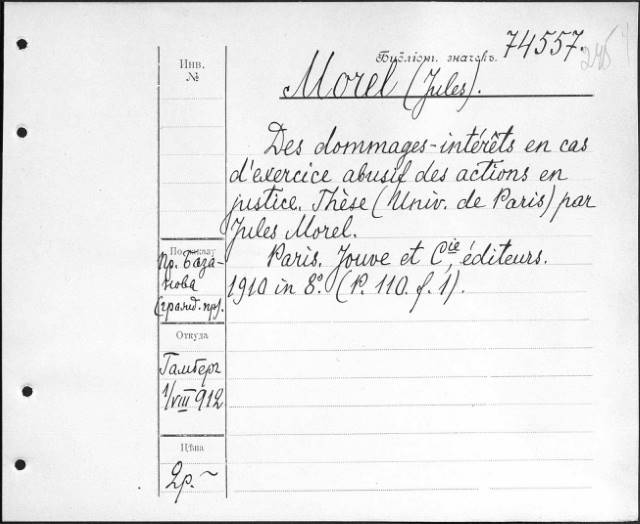 74557.
245
Библіот. значекъ.
Инв.
№
Morel (Jules).
Des dommages-intérêts en cas
d'exercice abusif des actions en
justice. Thèse (Univ. de Paris) par
Jules Morel.
Paris. Jouve et Cie, éditeurs.
1910 in 8°. (P. 110. f. 1).
По заказу
Пр. База-
нова
(гражд. пр).
Откуда
Гамберг
1/VIII 912
Цѣна
2р. ~